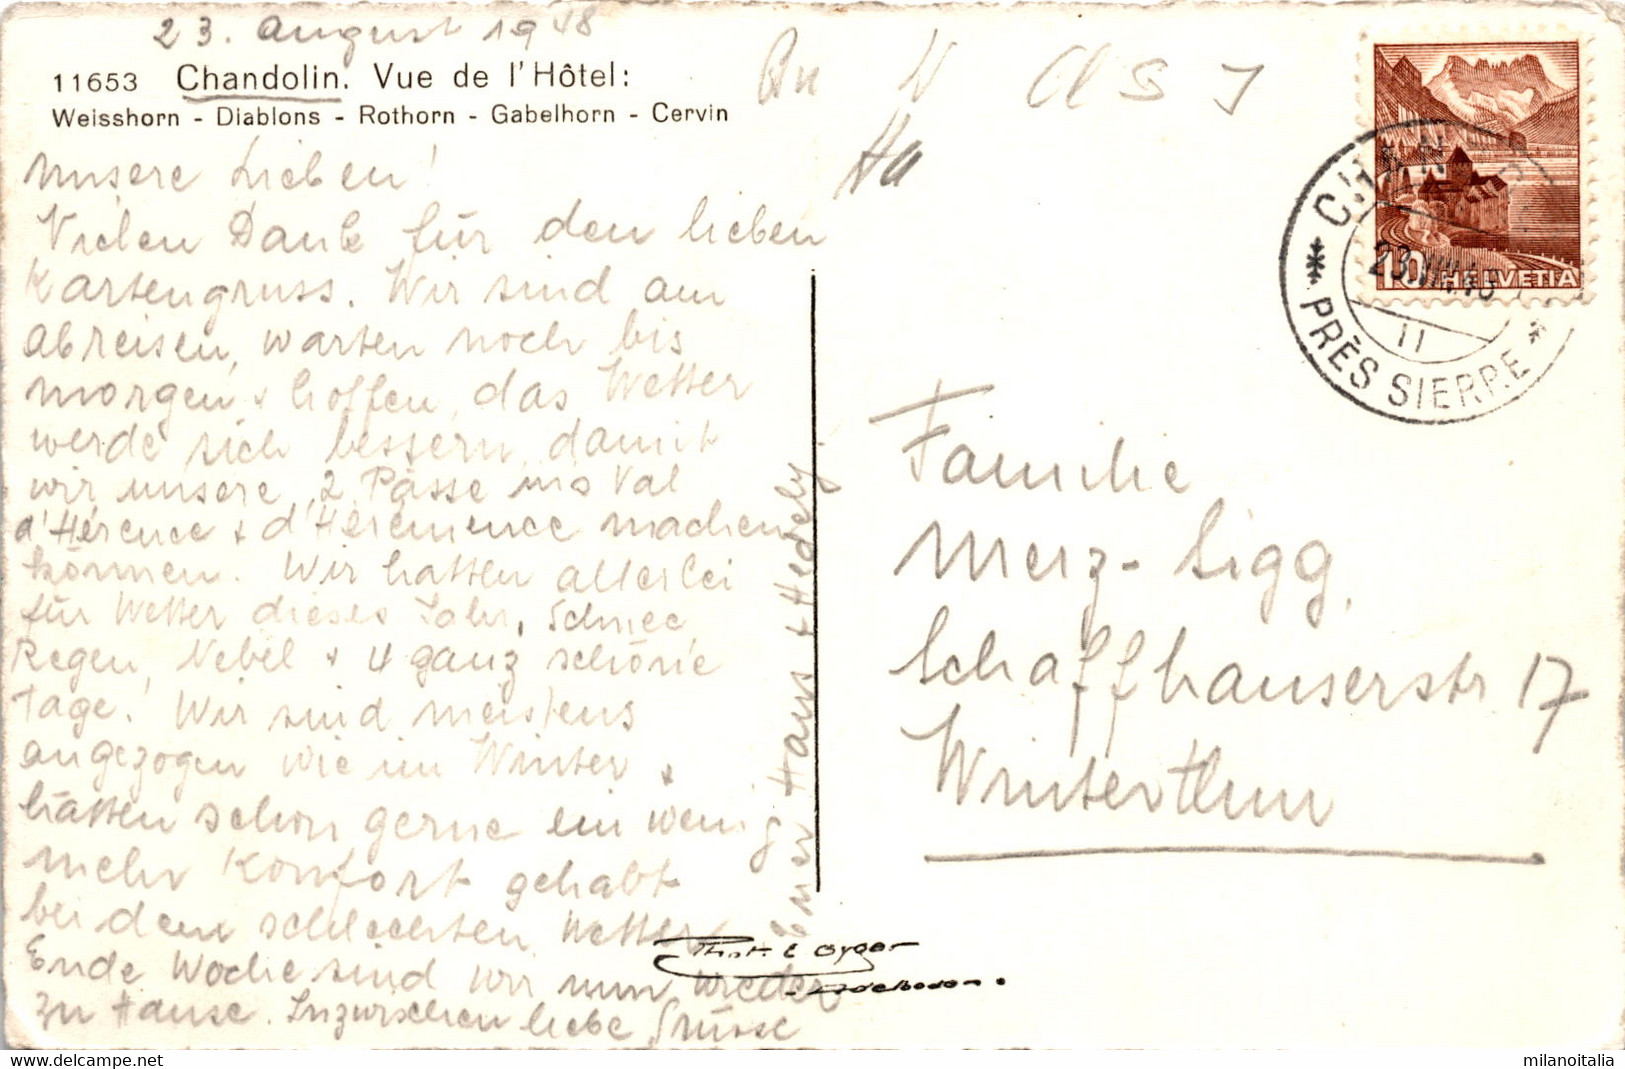 23. August 1948
11653 Chandolin. Vue de l'Hôtel:
Weisshorn - Diablons - Rothorn - Gabelhorn - Cervin
Unsere Lieben!
Vielen Dank für den lieben
Kartengruss. Wir sind am
abreisen, warten noch bis
morgen & hoffen, das Wetter
werde sich bessern, damit
wir unsere 2 Pässe ins Val
d'Hérence & d'Herémence machen
können. Wir hatten allerlei
für Wetter dieses Jahr, Schnee,
Regen, Nebel & 4 ganz schöne
Tage. Wir sind meistens
angezogen wie im Winter &
hätten schon gerne ein wenig
mehr Konfort gehabt
bei dem schlechten Wetter
Ende Woche sind wir nun wieder
zu Hause. Inzwischen liebe Grüsse
Hans & Hedely
Phot. E Gyger
Adelboden.
HELVETIA
10
PRÈS SIERRE
23.VIII.48
11
Familie
Merz-Sigg,
Schaffhauserstr 17
Winterthur
milanoitalia